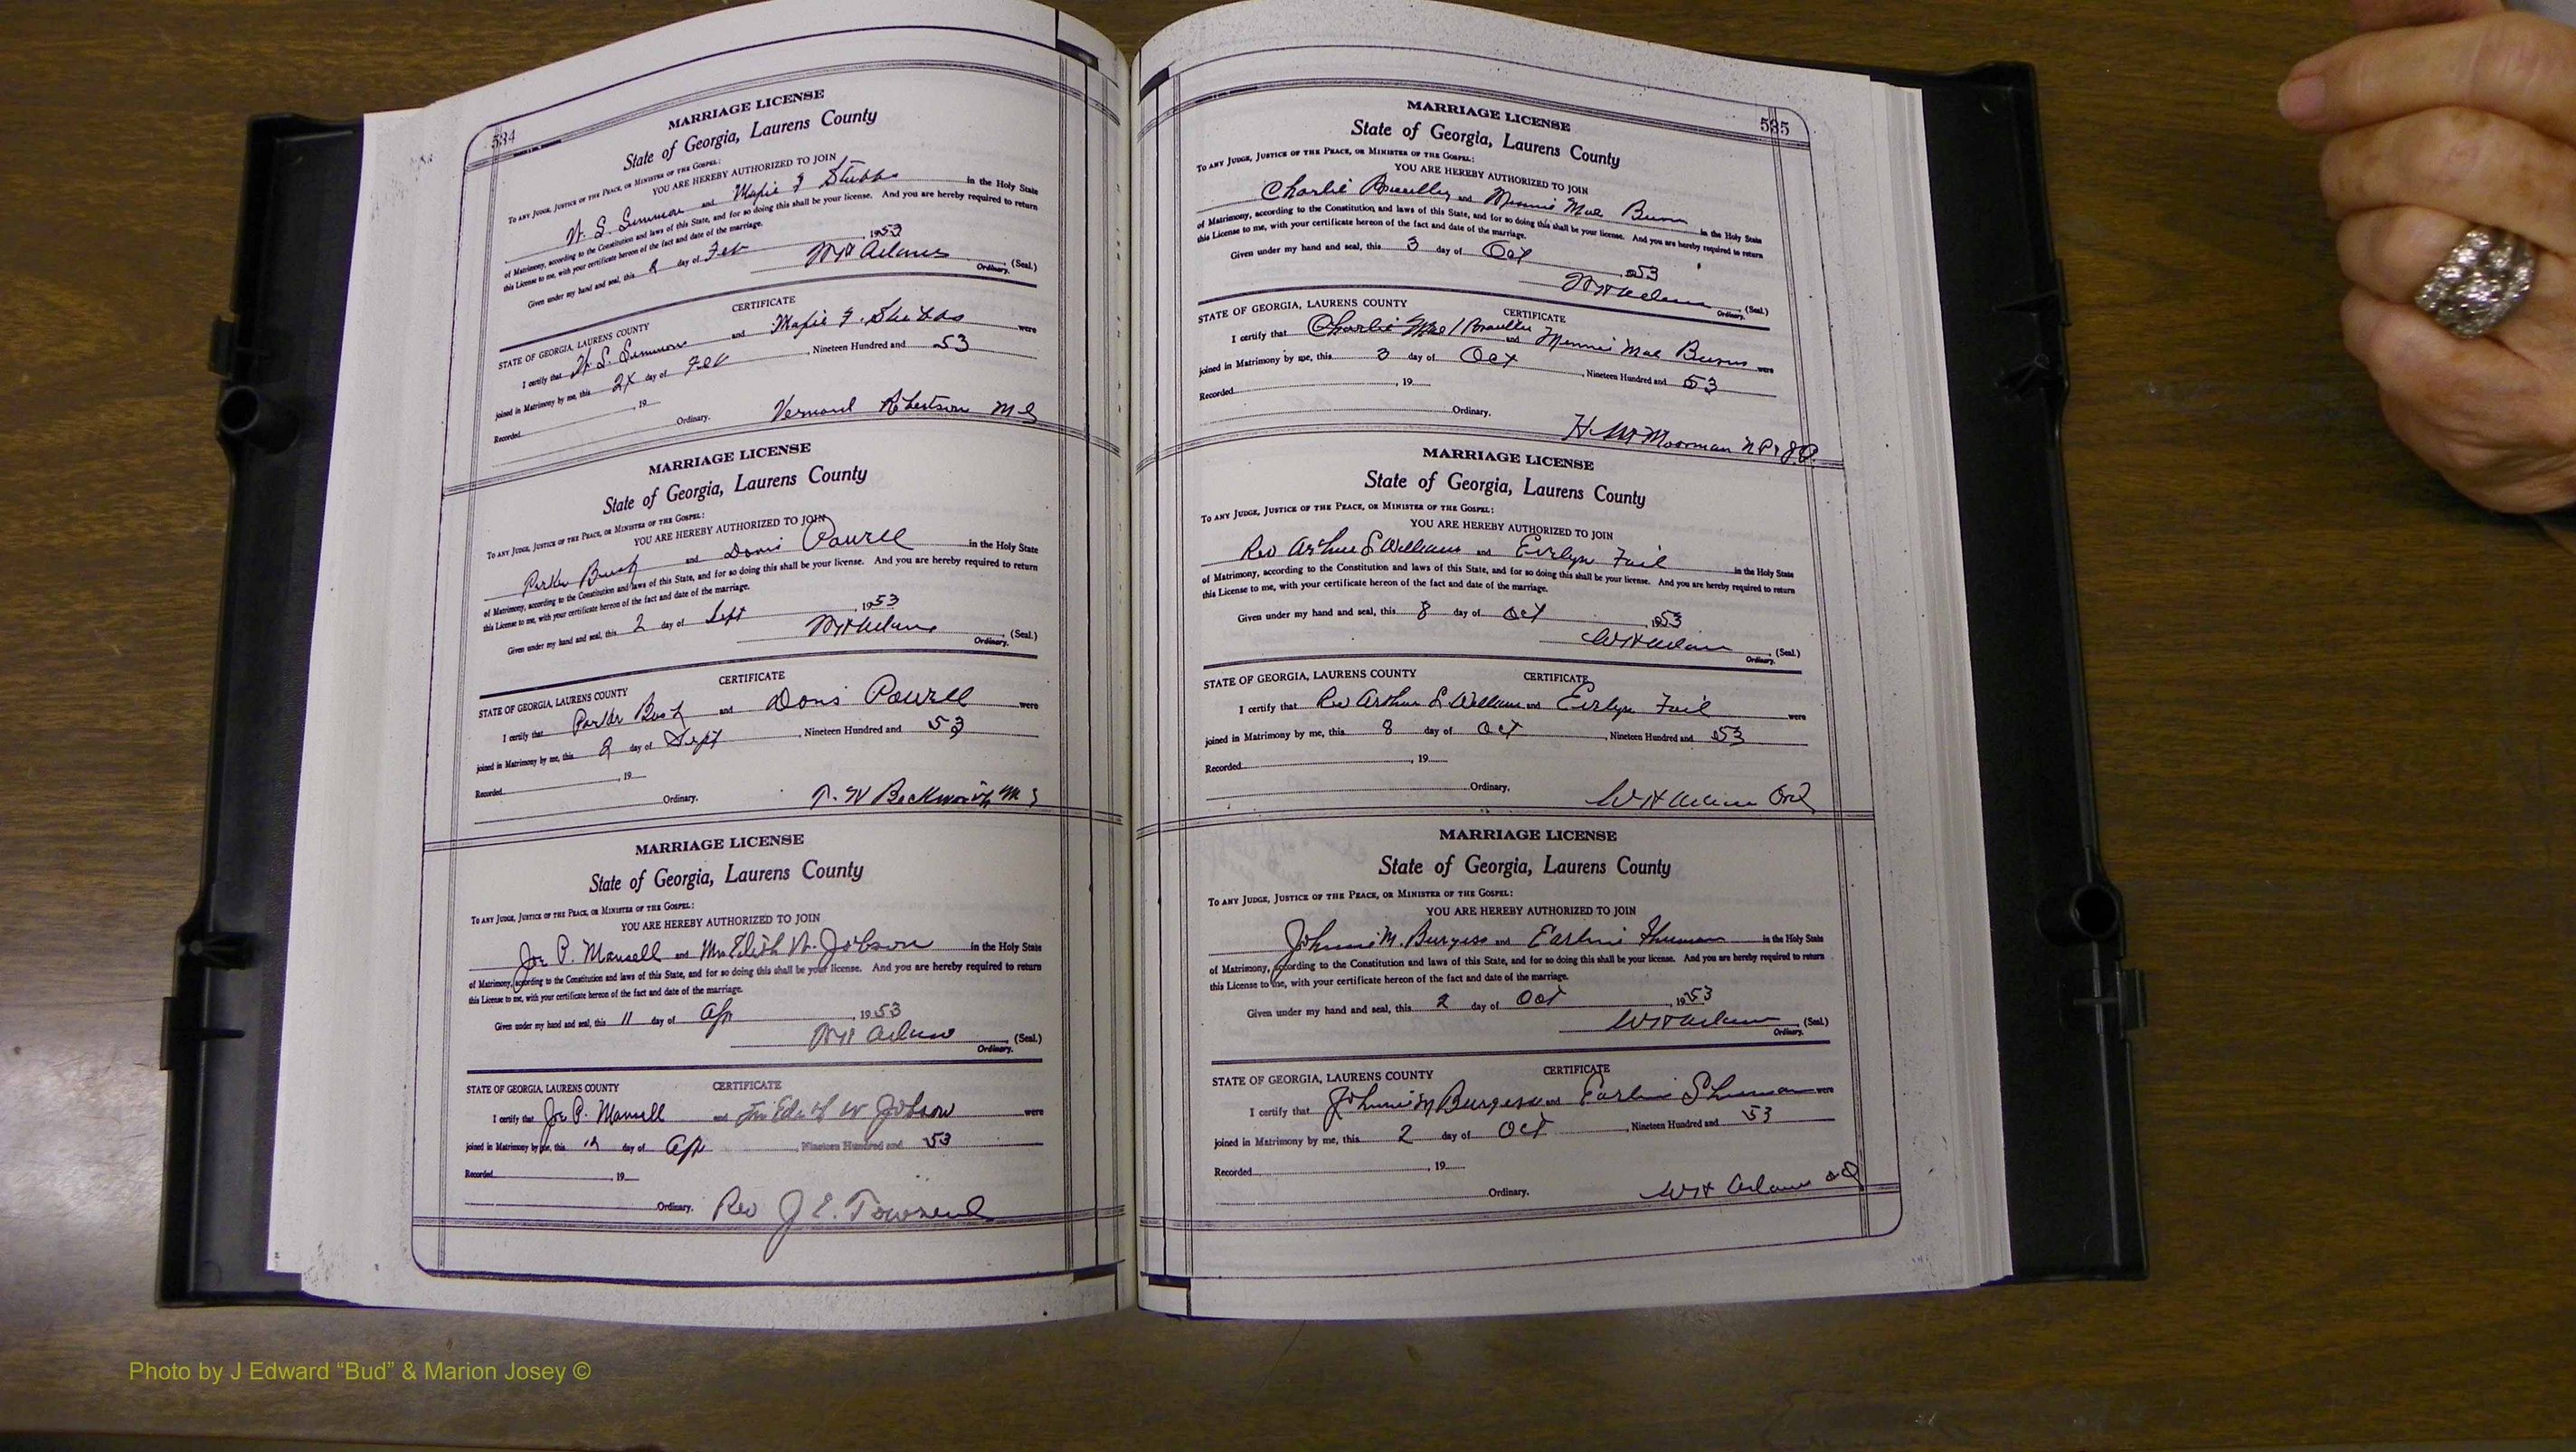 534
MARRIAGE LICENSE
State of Georgia, Laurens County
To ANY JUDGE, JUSTICE OF THE PEACE, OR MINISTER OF THE GOSPEL:
YOU ARE HEREBY AUTHORIZED TO JOIN
and Stubbs in the Holy State
of Matrimony, according to the Constitution and laws of this State, and for so doing this shall be your license. And you are hereby required to return
this License to me, with your certificate hereon of the fact and date of the marriage.
Given under my hand and seal, this day of Feb 1953
WH Adams (Seal.)
Ordinary.
STATE OF GEORGIA, LAURENS COUNTY CERTIFICATE
I certify that and Stubbs were
joined in Matrimony by me, this day of Feb, Nineteen Hundred and 53
Recorded , 19
Ordinary. Robertson M G
MARRIAGE LICENSE
State of Georgia, Laurens County
To ANY JUDGE, JUSTICE OF THE PEACE, OR MINISTER OF THE GOSPEL:
YOU ARE HEREBY AUTHORIZED TO JOIN
Parker Bush and Doris Powell in the Holy State
of Matrimony, according to the Constitution and laws of this State, and for so doing this shall be your license. And you are hereby required to return
this License to me, with your certificate hereon of the fact and date of the marriage.
Given under my hand and seal, this 2 day of Sept, 1953
WH Adams (Seal.)
Ordinary.
STATE OF GEORGIA, LAURENS COUNTY CERTIFICATE
I certify that Parker Bush and Doris Powell were
joined in Matrimony by me, this 2 day of Sept, Nineteen Hundred and 53
Recorded , 19
Ordinary. Beckworth M G
MARRIAGE LICENSE
State of Georgia, Laurens County
To ANY JUDGE, JUSTICE OF THE PEACE, OR MINISTER OF THE GOSPEL:
YOU ARE HEREBY AUTHORIZED TO JOIN
Joe P. Mansell and Mrs Edith W. Jobson in the Holy State
of Matrimony, according to the Constitution and laws of this State, and for so doing this shall be your license. And you are hereby required to return
this License to me, with your certificate hereon of the fact and date of the marriage.
Given under my hand and seal, this 11 day of Apr, 1953
WH Adams (Seal.)
Ordinary.
STATE OF GEORGIA, LAURENS COUNTY CERTIFICATE
I certify that Joe P. Mansell and Edith W Jobson were
joined in Matrimony by me, this day of Apr, Nineteen Hundred and 53
Recorded , 19
Ordinary. Rev J E. Townsend
535
MARRIAGE LICENSE
State of Georgia, Laurens County
To ANY JUDGE, JUSTICE OF THE PEACE, OR MINISTER OF THE GOSPEL:
YOU ARE HEREBY AUTHORIZED TO JOIN
Charlie and Minnie Mae in the Holy State
of Matrimony, according to the Constitution and laws of this State, and for so doing this shall be your license. And you are hereby required to return
this License to me, with your certificate hereon of the fact and date of the marriage.
Given under my hand and seal, this 3 day of Oct, 1953
WH Adams (Seal.)
Ordinary.
STATE OF GEORGIA, LAURENS COUNTY CERTIFICATE
I certify that Charlie and Minnie Mae were
joined in Matrimony by me, this 3 day of Oct, Nineteen Hundred and 53
Recorded , 19
Ordinary.
Moorman N P & J.P.
MARRIAGE LICENSE
State of Georgia, Laurens County
To ANY JUDGE, JUSTICE OF THE PEACE, OR MINISTER OF THE GOSPEL:
YOU ARE HEREBY AUTHORIZED TO JOIN
Rev Arthur S Williams and Evelyn Fail in the Holy State
of Matrimony, according to the Constitution and laws of this State, and for so doing this shall be your license. And you are hereby required to return
this License to me, with your certificate hereon of the fact and date of the marriage.
Given under my hand and seal, this 8 day of Oct, 1953
WH Adams (Seal.)
Ordinary.
STATE OF GEORGIA, LAURENS COUNTY CERTIFICATE
I certify that Rev Arthur S Williams and Evelyn Fail were
joined in Matrimony by me, this 8 day of Oct, Nineteen Hundred and 53
Recorded , 19
Ordinary. WH Adams Ord
MARRIAGE LICENSE
State of Georgia, Laurens County
To ANY JUDGE, JUSTICE OF THE PEACE, OR MINISTER OF THE GOSPEL:
YOU ARE HEREBY AUTHORIZED TO JOIN
Johnnie M. Burgess and Earline Shuman in the Holy State
of Matrimony, according to the Constitution and laws of this State, and for so doing this shall be your license. And you are hereby required to return
this License to me, with your certificate hereon of the fact and date of the marriage.
Given under my hand and seal, this 2 day of Oct, 1953
WH Adams (Seal.)
Ordinary.
STATE OF GEORGIA, LAURENS COUNTY CERTIFICATE
I certify that Johnnie M Burgess and Earline Shuman were
joined in Matrimony by me, this 2 day of Oct, Nineteen Hundred and 53
Recorded , 19
Ordinary. WH Adams Ord
Photo by J Edward “Bud” & Marion Josey ©